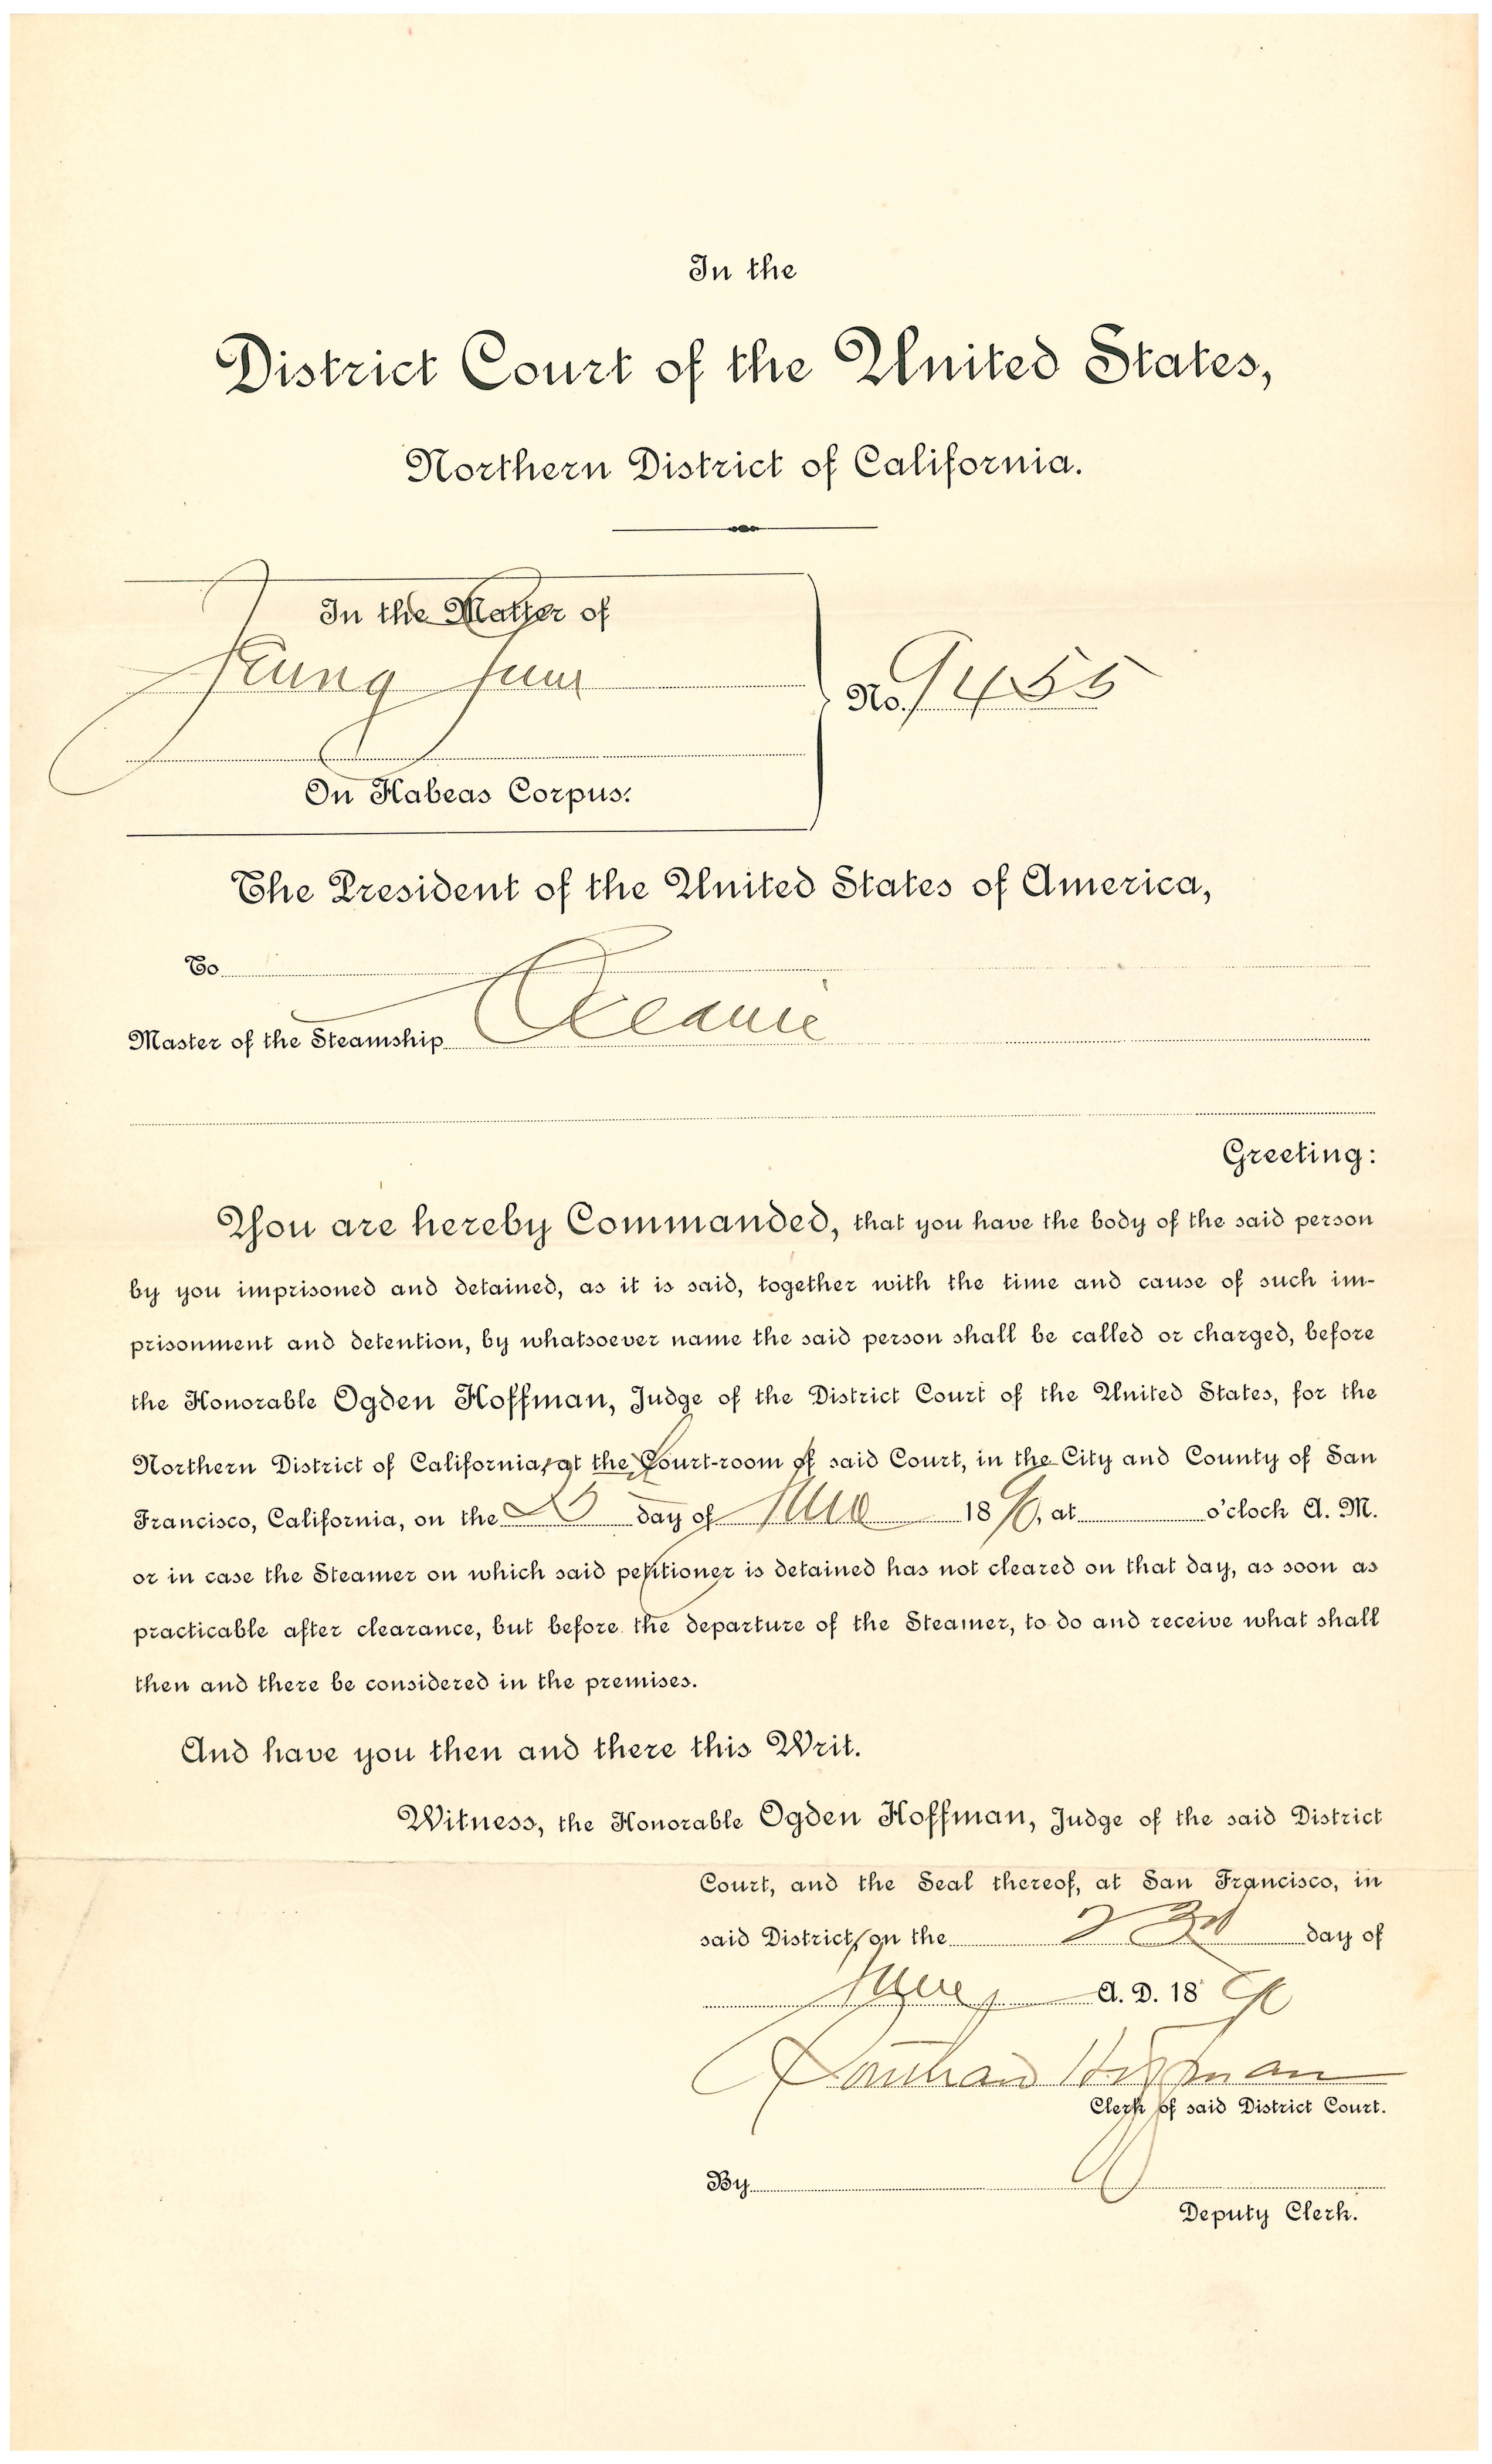 In the
District Court of the United States,
Northern District of California.
In the Matter of
No. 9455
On Habeas Corpus.
The President of the United States of America,
To
Master of the Steamship Oceanic
Greeting:
You are hereby Commanded, that you have the body of the said person
by you imprisoned and detained, as it is said, together with the time and cause of such im-
prisonment and detention, by whatsoever name the said person shall be called or charged, before
the Honorable Ogden Hoffman, Judge of the District Court of the United States, for the
Northern District of California, at the Court-room of said Court, in the City and County of San
Francisco, California, on the day of June 1890, at o'clock A. M.
or in case the Steamer on which said petitioner is detained has not cleared on that day, as soon as
practicable after clearance, but before the departure of the Steamer, to do and receive what shall
then and there be considered in the premises.
And have you then and there this Writ.
Witness, the Honorable Ogden Hoffman, Judge of the said District
Court, and the Seal thereof, at San Francisco, in
said District, on the 23d day of
June, A. D. 1890
Southard Hoffman
Clerk of said District Court.
By
Deputy Clerk.